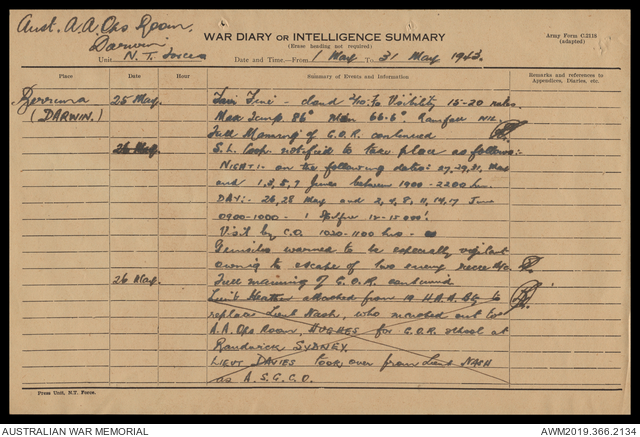 Aust. A.A Ops Room,
Darwin
WAR DIARY OR INTELLIGENCE SUMMARY
(Erase heading not required)
Army Form C.2118
(adapted)
Unit N.T. Forces
Date and Time.—From 1 May To 31 May 1943.
Place
Date
Hour
Summary of Events and Information
Remarks and references to
Appendices, Diaries, etc.
Berrima
(DARWIN.)
25 May.
Fair Fine - cloud Visibility 15-20 miles.
Max temp. 86° Min 66.6° Rainfall NIL.
Full Manning of G.O.R. continued
26 May.
S.L. Coop. notified to take place as follows:-
NIGHT:- on the following dates: 27, 29, 31, May
and 1, 3, 5, 7 June between 1900 - 2200 hrs.
DAY:- 26, 28 May and 2, 4, 8, 11, 14, 17 June
0900-1000 - 1 Spitfire 12-15000'.
Visit by C.O. 1030-1100 hrs -
Gunsites warned to be especially vigilant
owing to escape of two enemy recce a/c.
26 May.
Full manning of G.O.R. continued
Lieut attached from 19 H.A.A. Bty to
replace Lieut Nash, who marched out to
A.A Ops Room, HUGHES for G.O.R. school at
Randwick SYDNEY.
LIEUT DAVIES TOOK over from Lieut NASH
as A.S.G.C.O.
Press Unit, N.T. Force.
AUSTRALIAN WAR MEMORIAL
AWM2019.366.2134